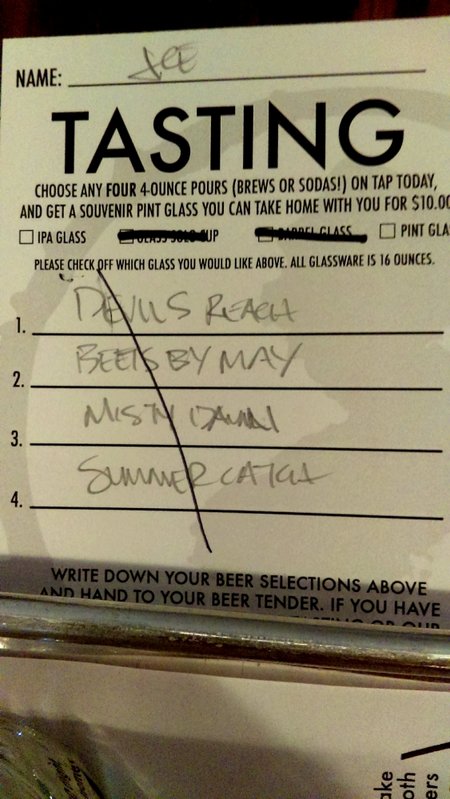 NAME: JEE
TASTING
CHOOSE ANY FOUR 4-OUNCE POURS (BREWS OR SODAS!) ON TAP TODAY,
AND GET A SOUVENIR PINT GLASS YOU CAN TAKE HOME WITH YOU FOR $10.00
IPA GLASS GLASS SOLO CUP BARREL GLASS PINT GLA
PLEASE CHECK OFF WHICH GLASS YOU WOULD LIKE ABOVE. ALL GLASSWARE IS 16 OUNCES.
1. DEVILS REACH
2. BEETS BY MAY
3. MISTY DAWN
4. SUMMER CATCH
WRITE DOWN YOUR BEER SELECTIONS ABOVE
AND HAND TO YOUR BEER TENDER. IF YOU HAVE
ake
oth
ers